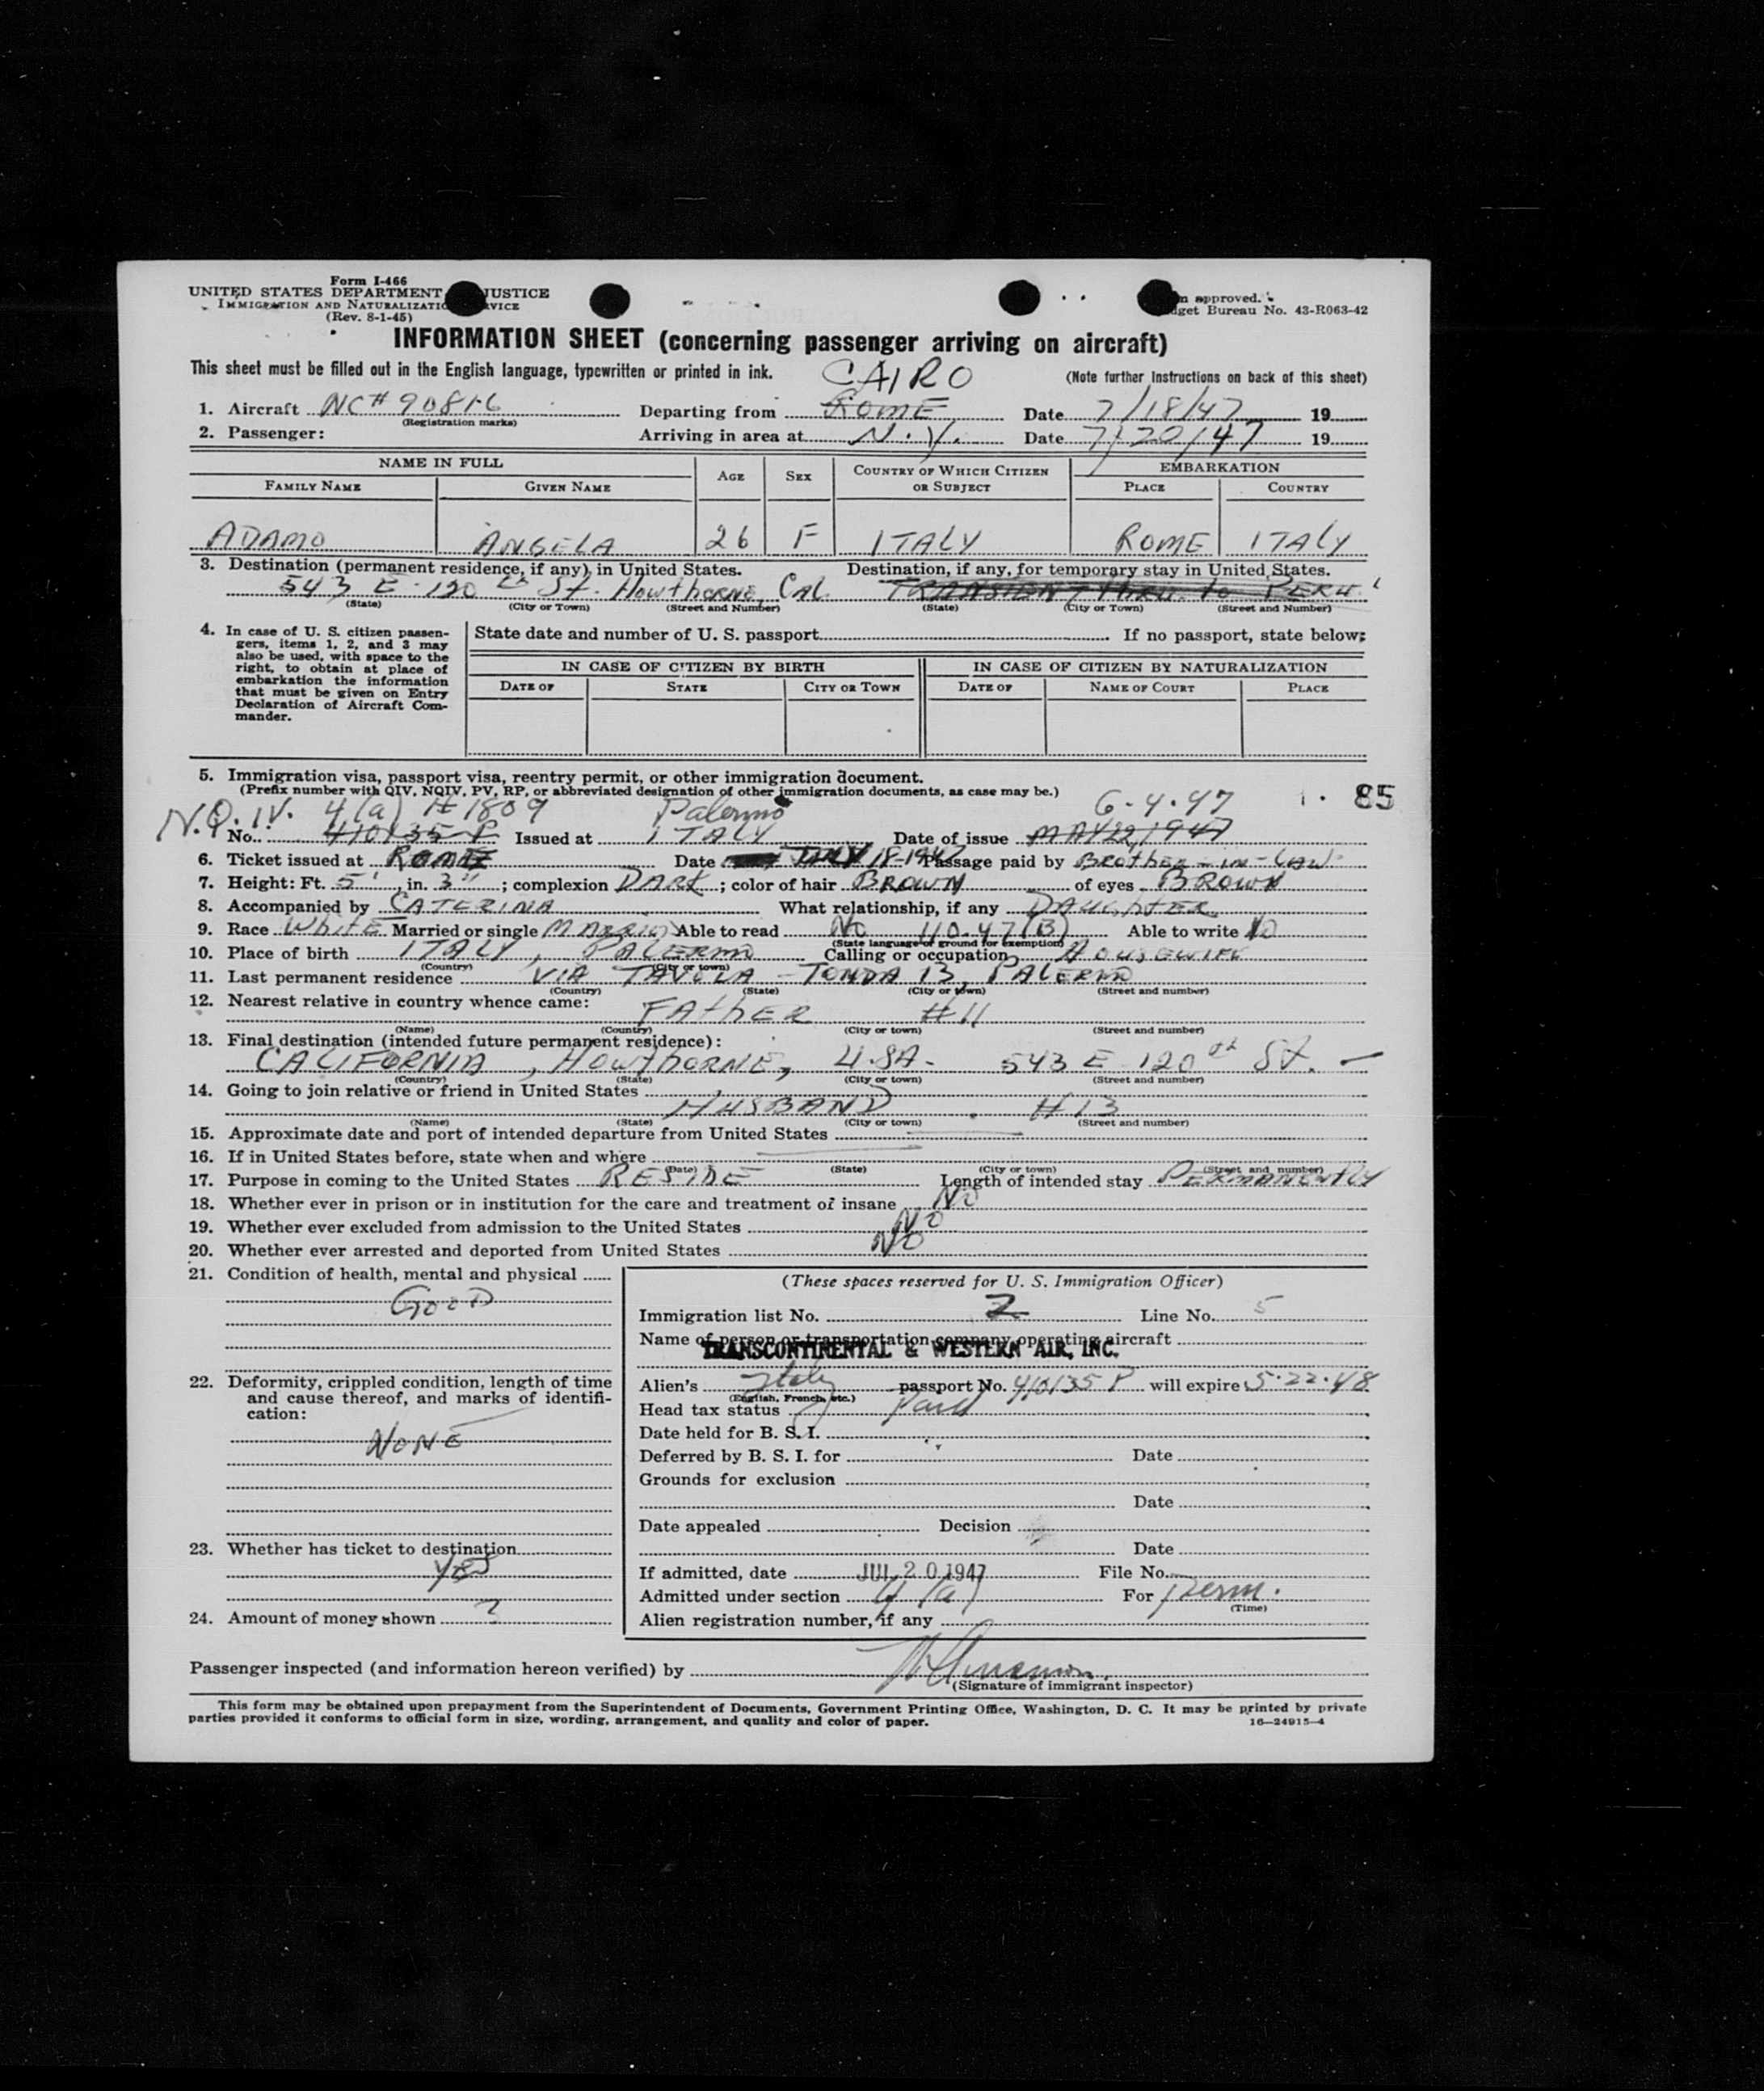 Form I-466
UNITED STATES DEPARTMENT JUSTICE
IMMIGRATION AND NATURALIZATIO VICE
(Rev. 8-1-45)
n approved.
get Bureau No. 43-R063-42
INFORMATION SHEET (concerning passenger arriving on aircraft)
This sheet must be filled out in the English language, typewritten or printed in ink.
CAIRO
(Note further instructions on back of this sheet)
1. Aircraft NC# 90816 Departing from ROME Date 7/18/47 19
(Registration marks)
2. Passenger: Arriving in area at N.Y. Date 7/20/47 19
NAME IN FULL AGE SEX COUNTRY OF WHICH CITIZEN OR SUBJECT EMBARKATION
FAMILY NAME GIVEN NAME PLACE COUNTRY
ADAMO ANGELA 26 F ITALY ROME ITALY
3. Destination (permanent residence, if any), in United States. Destination, if any, for temporary stay in United States.
543 E. 120 th St. Howthorne, Cal. TRANSIENT thru to PERU
(State) (City or Town) (Street and Number) (State) (City or Town) (Street and Number)
4. In case of U. S. citizen passen-
gers, items 1, 2, and 3 may
also be used, with space to the
right, to obtain at place of
embarkation the information
that must be given on Entry
Declaration of Aircraft Com-
mander.
State date and number of U. S. passport If no passport, state below:
IN CASE OF CITIZEN BY BIRTH IN CASE OF CITIZEN BY NATURALIZATION
DATE OF STATE CITY OR TOWN DATE OF NAME OF COURT PLACE
5. Immigration visa, passport visa, reentry permit, or other immigration document.
(Prefix number with QIV, NQIV, PV, RP, or abbreviated designation of other immigration documents, as case may be.)
N.Q.IV. 4(a) # 1809 Palermo 6-4-47 85
No. 410135 P Issued at ITALY Date of issue MAY 22, 1947
6. Ticket issued at ROME Date JULY 18-1947 Passage paid by BROTHER-IN-LAW
7. Height: Ft. 5', in. 3"; complexion DARK; color of hair BROWN of eyes BROWN
8. Accompanied by CATERINA What relationship, if any DAUGHTER
9. Race WHITE Married or single MARRIED Able to read No 110.47(B) Able to write NO
(State language or ground for exemption)
10. Place of birth ITALY, PALERMO Calling or occupation HOUSEWIFE
(Country) (City or town)
11. Last permanent residence VIA TAVOLA - TONDA 13, PALERMO
(Country) (State) (City or town) (Street and number)
12. Nearest relative in country whence came:
FATHER #11
(Name) (Country) (City or town) (Street and number)
13. Final destination (intended future permanent residence):
CALIFORNIA, HOWTHORNE, U.SA. 543 E 120th St. -
(Country) (State) (City or town) (Street and number)
14. Going to join relative or friend in United States
HUSBAND . #13
(Name) (State) (City or town) (Street and number)
15. Approximate date and port of intended departure from United States
16. If in United States before, state when and where
(Date) (State) (City or town) (Street and number)
17. Purpose in coming to the United States RESIDE Length of intended stay PERMANENTLY
18. Whether ever in prison or in institution for the care and treatment of insane NO
19. Whether ever excluded from admission to the United States NO
20. Whether ever arrested and deported from United States NO
21. Condition of health, mental and physical
GOOD
22. Deformity, crippled condition, length of time
and cause thereof, and marks of identifi-
cation:
NONE
23. Whether has ticket to destination
YES
24. Amount of money shown
(These spaces reserved for U. S. Immigration Officer)
Immigration list No. 2 Line No. 5
Name of person or transportation company operating aircraft
TRANSCONTINENTAL & WESTERN AIR, INC.
Alien's Italy passport No. 410135 P will expire 5-22-48
(English, French, etc.)
Head tax status Paid
Date held for B. S. I.
Deferred by B. S. I. for Date
Grounds for exclusion
Date
Date appealed Decision
Date
If admitted, date JUL 20 1947 File No.
Admitted under section 4 (a) For perm.
(Time)
Alien registration number, if any
Passenger inspected (and information hereon verified) by
(Signature of immigrant inspector)
This form may be obtained upon prepayment from the Superintendent of Documents, Government Printing Office, Washington, D. C. It may be printed by private
parties provided it conforms to official form in size, wording, arrangement, and quality and color of paper. 16—24915-4